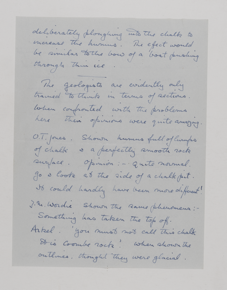 deliberately ploughing into the chalk to
increase the humus. The effect would
be similar to the bow of a boat pushing
through thin ice.
The geologists are evidently only
trained to think in terms of sections.
When confronted with the problems
here their opinions were quite amazing.
O.T. Jones. Shown humus full of lumps
of chalk & a perfectly smooth rock
surface. Opinion:- Quite normal.
Go & look at the side of a chalk pit.
It could hardly have been more different!
J.M. Wordie shown the same phenomena:-
Something has taken the top off.
Arkell. 'You must not call this chalk.
It is Coombe rock!' When shown the
outlines, thought they were glacial.